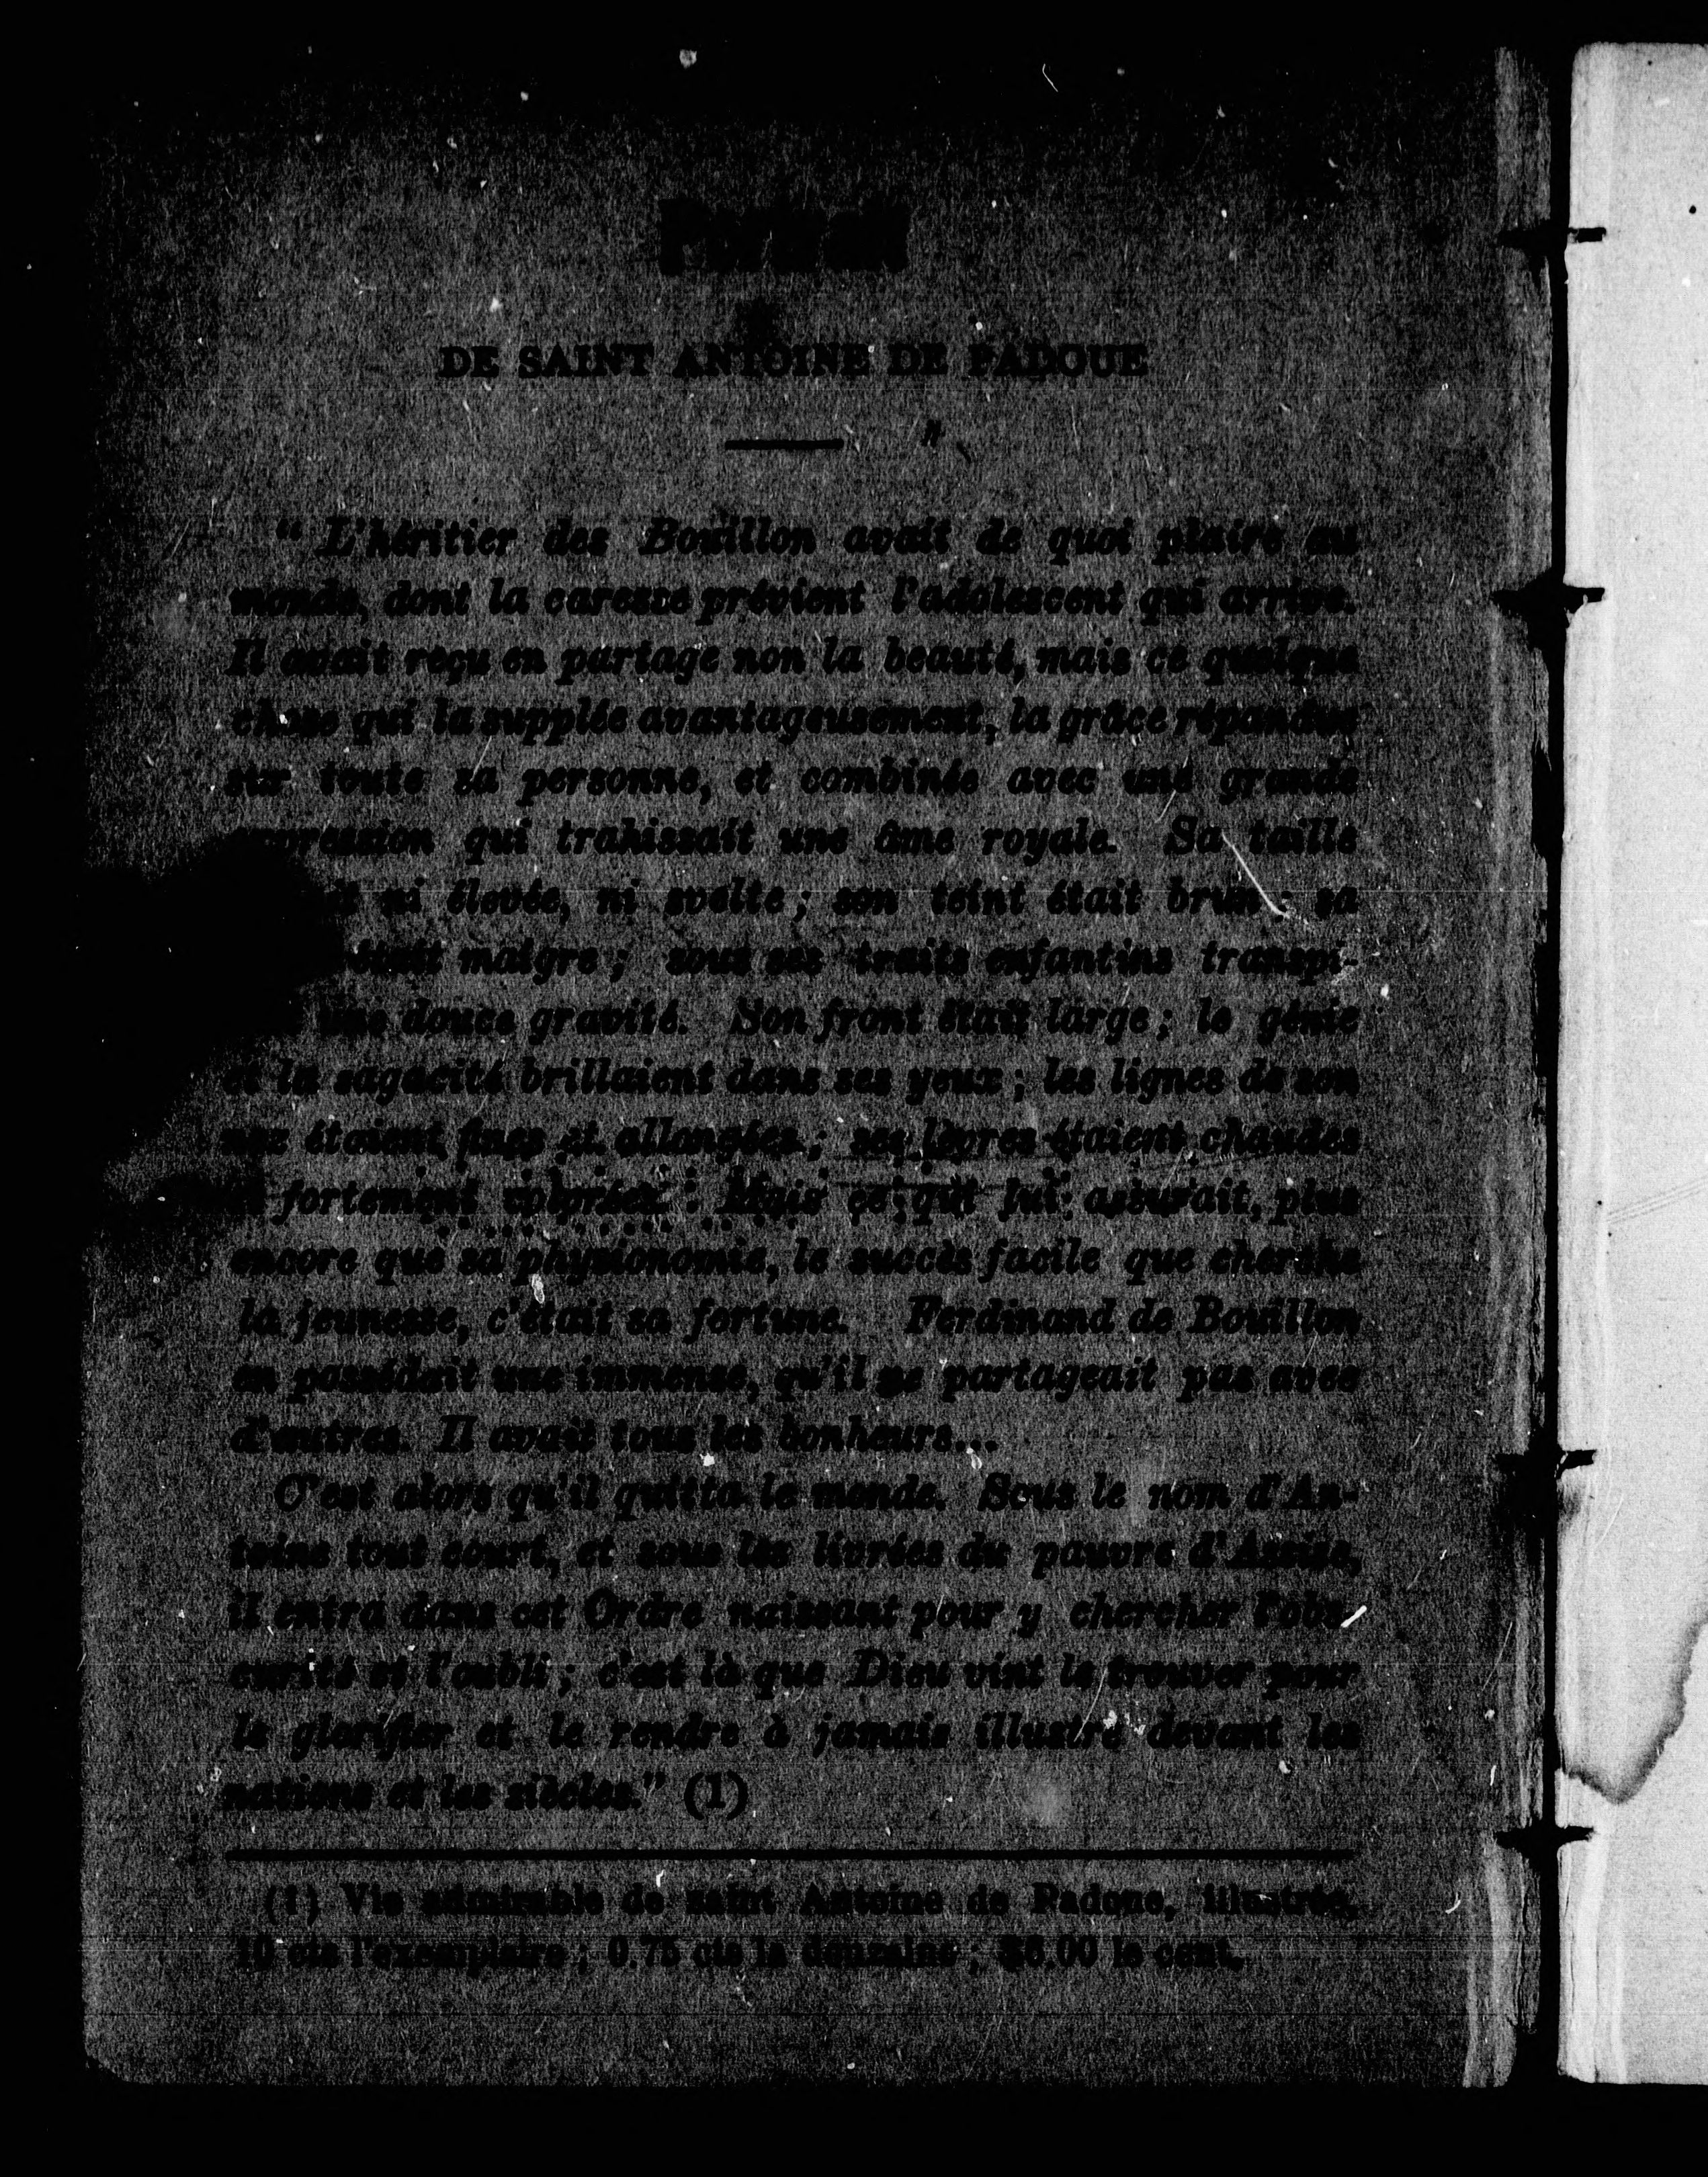 Portrait
DE SAINT ANTOINE DE PADOUE
“ L'héritier des Bouillon avait de quoi plaire au
monde, dont la caresse prévient l'adolescent qui arrive.
Il avait reçu en partage non la beauté, mais ce quelque
chose qui la supplée avantageusement, la grâce répandue
sur toute sa personne, et combinée avec une grande
expression qui trahissait une âme royale. Sa taille
ni élevée, ni svelte ; son teint était brun : sa
était maigre ; sous ses traits enfantins transpi-
une douce gravité. Son front était large ; le génie
et la sagacité brillaient dans ses yeux ; les lignes de son
nez étaient fines et allongées ; ses lèvres étaient chaudes
et fortement colorées. Mais ce qui lui assurait, plus
encore que sa physionomie, le succès facile que cherche
la jeunesse, c'était sa fortune. Ferdinand de Bouillon
en possédait une immense, qu'il ne partageait pas avec
d'autres. Il avait tous les bonheurs...
C'est alors qu'il quitta le monde. Sous le nom d'An-
toine tout court, et sous les livrées du pauvre d'Assise,
il entra dans cet Ordre naissant pour y chercher l'obs-
curité et l'oubli ; c'est là que Dieu vint le trouver pour
le glorifier et le rendre à jamais illustre devant les
nations et les siècles.” (1)
(1) Vie admirable de saint Antoine de Padoue, illustrée,
10 cts l'exemplaire ; 0.75 cts la douzaine ; $6.00 le cent.